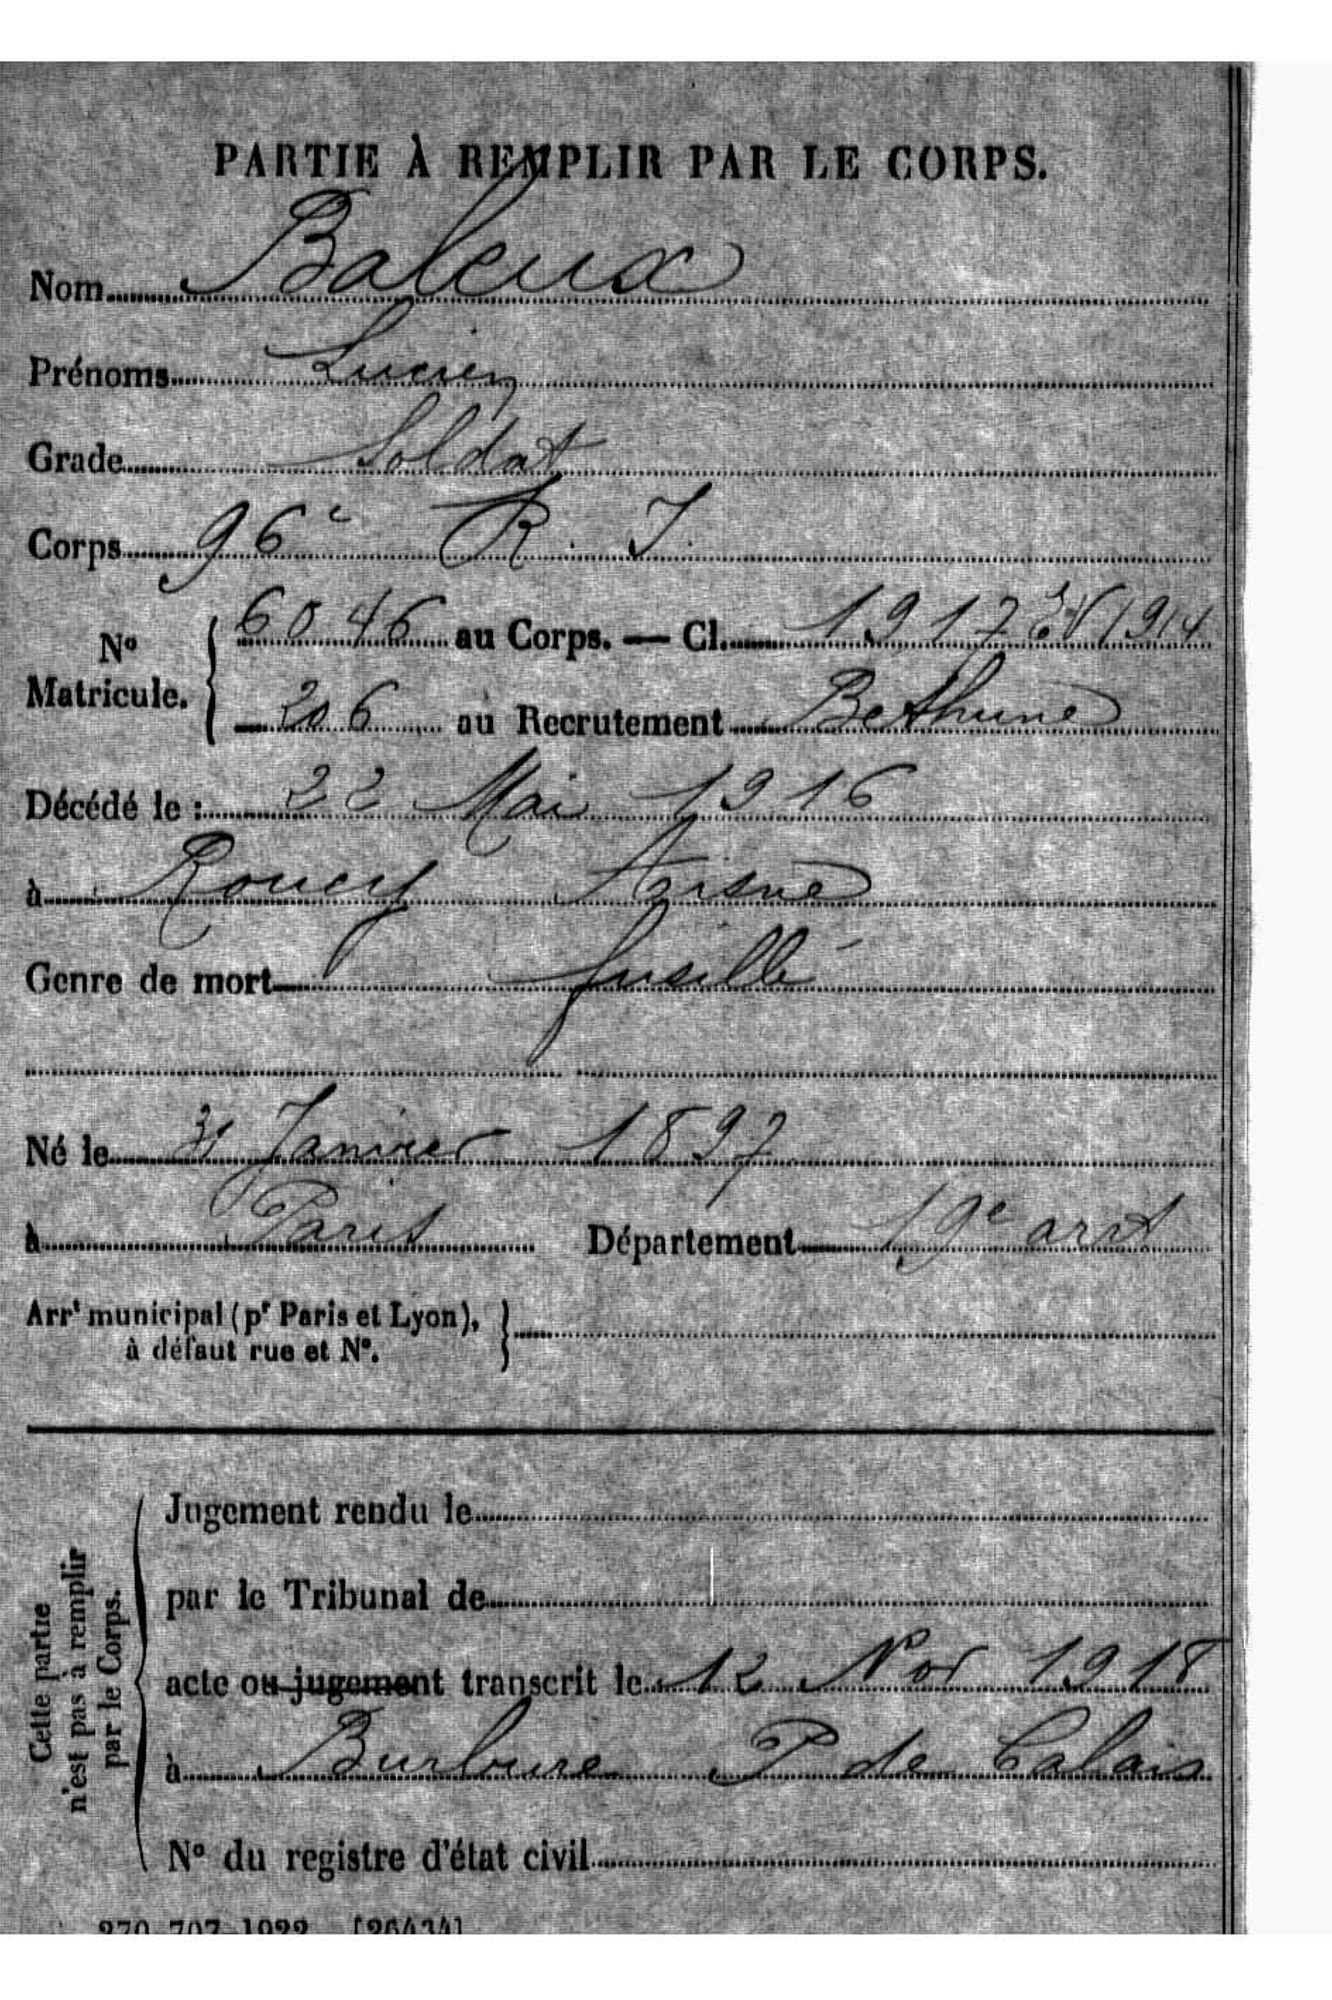 PARTIE À REMPLIR PAR LE CORPS.
Nom Baleux
Prénoms Lucien
Grade Soldat
Corps 96e R. I.
N° Matricule. 6046 au Corps. — Cl. 1917 EV 1914
206 au Recrutement Bethune
Décédé le : 22 Mai 1916
à Roucy Aisne
Genre de mort fusillé
Né le 31 Janvier 1897
à Paris Département 19e arrt
Arrt municipal (pr Paris et Lyon),
à défaut rue et N°.
Cette partie n'est pas à remplir par le Corps.
Jugement rendu le
par le Tribunal de
acte ou jugement transcrit le 12 Nov 1918
à Burbure P de Calais
N° du registre d'état civil
270-707-1922 [26434]